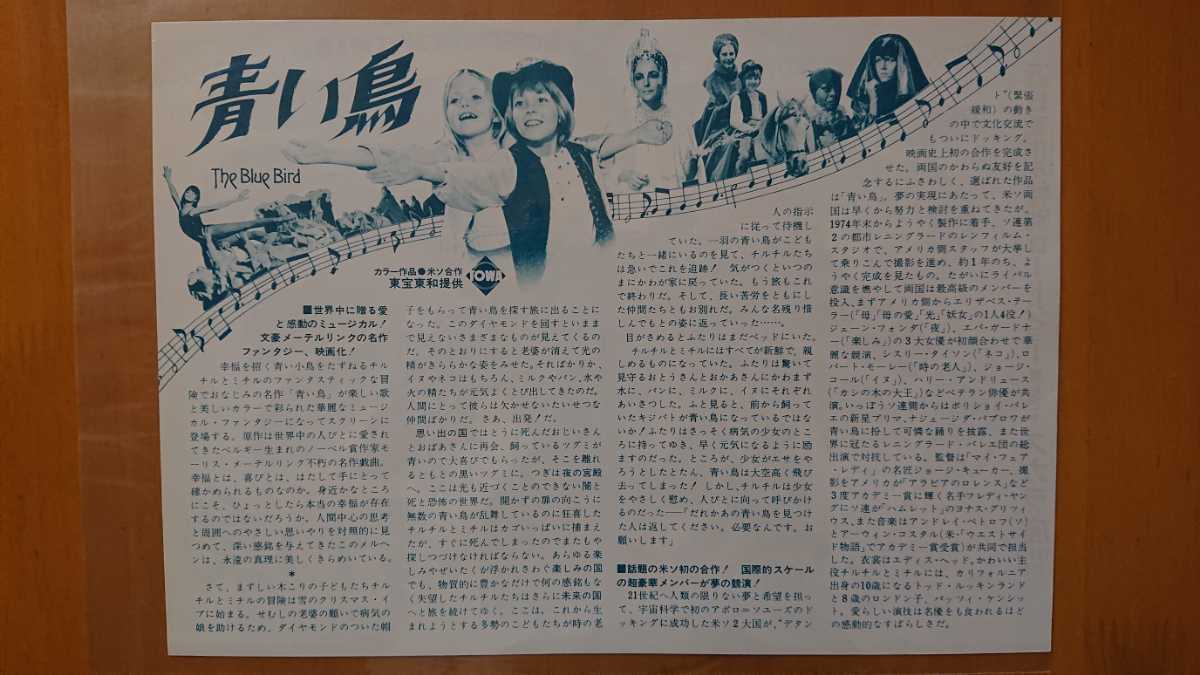 青い鳥
The Blue Bird
カラー作品●米ソ合作
東宝東和提供
TOWA
■世界中に贈る愛
と感動のミュージカル!
文豪メーテルリンクの名作
ファンタジー、映画化!
幸福を招く青い小鳥をたずねるチル
チルとミチルのファンタスティックな冒
険でおなじみの名作「青い鳥」が楽しい歌
と美しいカラーで彩られた華麗なミュージ
カル・ファンタジーになってスクリーンに
登場する。原作は世界中の人びとに愛され
てきたベルギー生まれのノーベル賞作家モ
ーリス・メーテルリンク不朽の名作戯曲。
幸福とは、喜びとは、はたして手にとって
確かめられるものなのか。身近かなところ
にこそ、ひょっとしたら本当の幸福が存在
するのではないだろうか。人間中心の思考
と周囲へのやさしい思いやりを対照的に見
つめて、深い感銘を与えてきたこのメルヘ
ンは、永遠の真理に美しくきらめいている。
*
さて、まずしい木こりの子どもたちチル
チルとミチルの冒険は雪のクリスマス・イ
ブに始まる。せむしの老婆の願いで病気の
娘を助けるため、ダイヤモンドのついた帽
子をもらって青い鳥を探す旅に出ることに
なった。このダイヤモンドを回すといまま
で見えないさまざまなものが見えてくるの
だ。そのとおりにすると老婆が消えて光の
精がきららかな姿をみせた。そればかりか、
イヌやネコはもちろん、ミルクやパン、水や
火の精たちが元気よくとび出してきたのだ。
人間にとって彼らは欠かせないたいせつな
仲間ばかりだ。さあ、出発!だ。
思い出の国ではとうに死んだおじいさん
とおばあさんに再会、飼っているツグミが
青いので大喜びでもらったが、そこを離れ
るともとの黒いツグミに。つぎは夜の宮殿
へ。ここは光も近づくことのできない闇と
死と恐怖の世界だ。開かずの扉の向こうに
無数の青い鳥が乱舞しているのに狂喜した
チルチルとミチルはカゴいっぱいに捕まえ
たが、すぐに死んでしまったのでまたもや
探しつづけなければならない。あらゆる楽
しみやぜいたくが浮かれさわぐ楽しみの国
でも、物質的に豊かなだけで何の感銘もな
く失望したチルチルたちはさらに未来の国
へと旅を続けてゆく。ここは、これから生
まれようとする多勢のこどもたちが時の老
人の指示
に従って待機し
ていた。一羽の青い鳥がこども
たちと一緒にいるのを見て、チルチルたち
は急いでこれを追跡! 気がつくといつの
まにかわが家に戻っていた。もう旅もこれ
で終わりだ。そして、長い苦労をともにし
た仲間たちともお別れだ。みんな名残り惜
しんでもとの姿に返っていった……。
目がさめるとふたりはまだベッドにいた。
チルチルとミチルにはすべてが新鮮で、親
しめるものになっていた。ふたりは驚いて
見守るおとうさんとおかあさんにかまわず
水に、パンに、ミルクに、イヌにそれぞれ
あいさつした。ふと見ると、前から飼って
いたキジバトが青い鳥になっているではな
いか!ふたりはさっそく病気の少女のとこ
ろに持ってゆき、早く元気になるように励
ますのだった。ところが、少女がエサをや
ろうとしたとたん、青い鳥は大空高く飛び
去ってしまった! しかし、チルチルは少女
をやさしく慰め、人びとに向って呼びかけ
るのだった──「だれかあの青い鳥を見つけ
た人は返してください。必要なんです。お
願いします」
■話題の米ソ初の合作! 国際的スケール
の超豪華メンバーが夢の競演!
21世紀へ人類の限りない夢と希望を担っ
て、宇宙科学で初のアポロ=ソユーズのド
ッキングに成功した米ソ2大国が、“デタン
ト”(緊張
緩和)の動き
の中で文化交流で
もついにドッキング。
映画史上初の合作を完成さ
せた。両国のかわらぬ友好を記
念するにふさわしく、選ばれた作品
は「青い鳥」。夢の実現にあたって、米ソ両
国は早くから努力と検討を重ねてきたが、
1974年末からようやく製作に着手、ソ連第
2の都市レニングラードのレンフィルム・
スタジオで、アメリカ側スタッフが大挙し
て乗りこんで撮影を進め、約1年のち、よ
うやく完成を見たもの。たがいにライバル
意識を燃やして両国は最高級のメンバーを
投入、まずアメリカ側からエリザベス・テー
ラー(「母」「母の愛」「光」「妖女」の1人4役!)
ジェーン・フォンダ(「夜」)、エバ・ガードナ
ー(「楽しみ」)の3大女優が初顔合わせで華
麗な競演、シスリー・タイソン(「ネコ」)、ロ
バート・モーレー(「時の老人」)、ジョージ・
コール(「イヌ」)、ハリー・アンドリュース
(「カシの木の大王」)などベテラン俳優が共
演。いっぽうソ連側からはボリショイ・バレ
エの新星プリマ、ナジェージダ・パブロワが
青い鳥に扮して可憐な踊りを披露、また世
界に冠たるレニングラード・バレエ団の総
出演で対抗している。監督は「マイ・フェア
・レディ」の名匠ジョージ・キューカー、撮
影をアメリカが「アラビアのロレンス」など
3度アカデミー賞に輝く名手フレディ・ヤン
グにソ連が「ハムレット」のヨナス・グリツィ
ウス、また音楽はアンドレイ・ペトロフ(ソ)
とアーウィン・コスタル(米・「ウエストサイ
ド物語」でアカデミー賞受賞)が共同で担当
した。衣裳はエディス・ヘッド。かわいい主
役チルチルとミチルには、カリフォルニア
出身の10歳になるトッド・ルッキンランド
と8歳のロンドンっ子、パッツィ・ケンシッ
ト。愛らしい演技は名優をも食われるほど
の感動的なすばらしさだ。